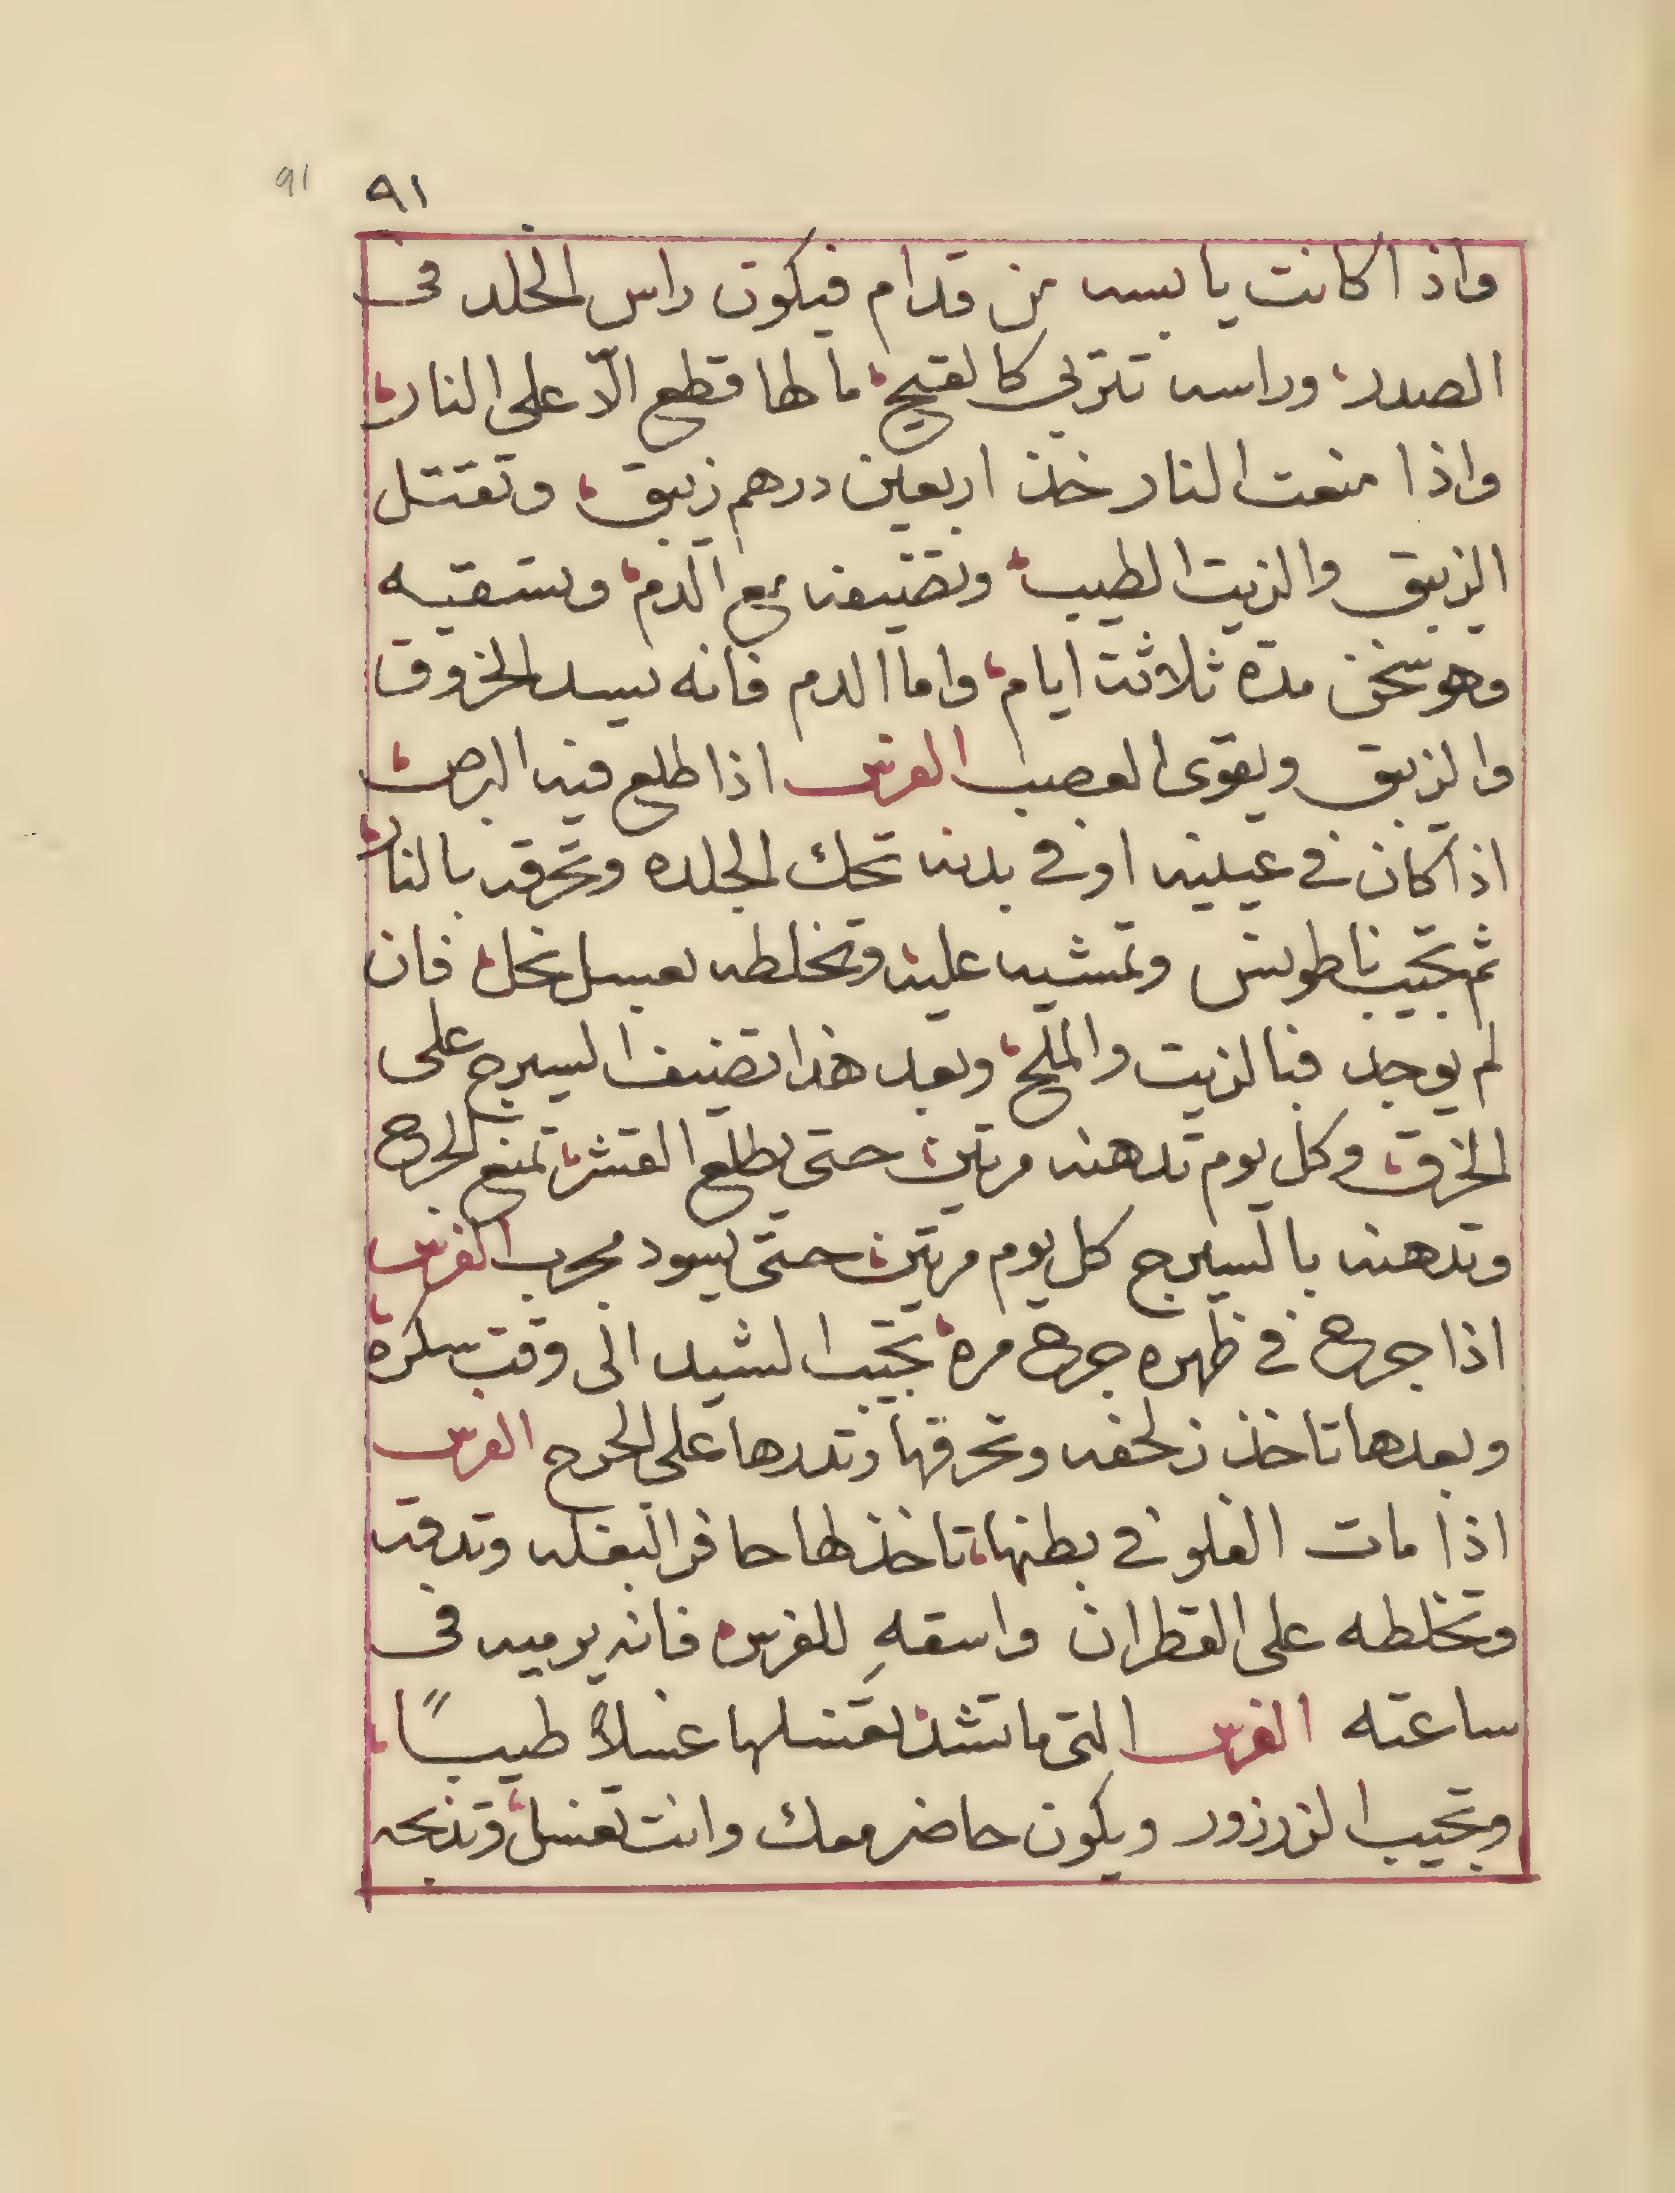 91 ٩١
واذا كانت يابسه من قدام فيكون راس الخلد فى
الصدر وراسه تتربى كالقيح ما لها قطع الّا على النار
واذا منعت النار خذ اربعين درهم زيبق وتقتل
الزيبق والزيت الطيب وتضيفه مع الدم وتسقيه
وهو سخن مدة ثلاثت ايام واما الدم فانه يسد الخزوق
والزيبق ويقوى العصب الفرس اذا طلع فيه البرص
اذا كان فى عينيه او فى بدنه تحك الجلده وتحرقه بالنار
ثم تجيب ناطويش وتمشيه عليه وتخلطه بعسل نحل فان
لم يوجد فبالزيت والملح وبعد هذا تضيف السيرج على
الخزق وكل يوم تدهنه مرتين حتى يطلع القشر تمنع الجرح
وتدهنه بالسيرج كل يوم مرتين حتى يسود مجرب الفرس
اذا جرح فى ظهره جرح مره تجيب الشيد الى وقت سكره
وبعدها تاخذ زلحفه وتحرقها وتدرها على الجرح الفرس
اذا مات الفلو فى بطنها تاخذ لها حافر البغله وتدقه
وتخلطه على القطران واسقهِ للفرس فانه يرميه فى
ساعته الفرس التى ما تشد تغسلها غسلاً طيباً
وتجيب الزرزور ويكون حاضر معك وانت تغسل وتذبحه